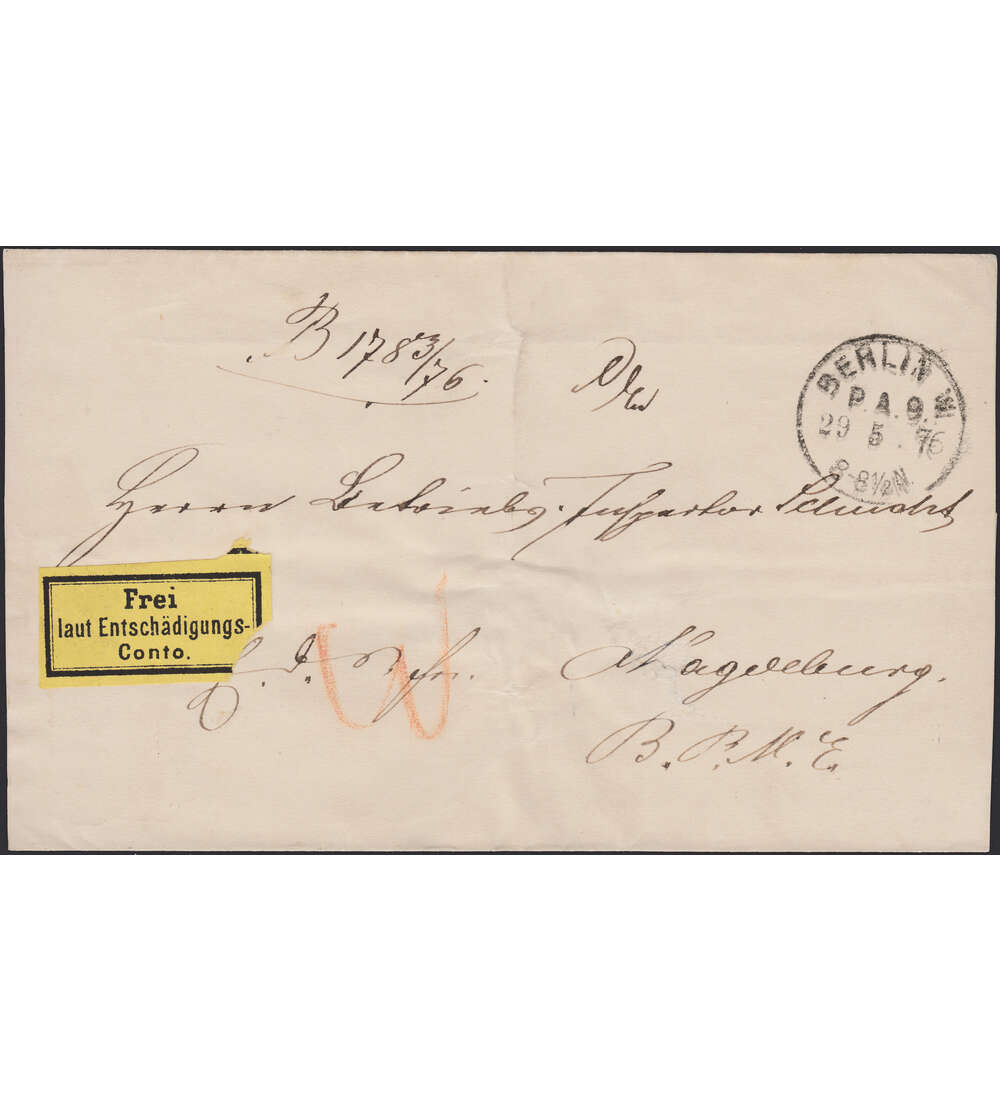 B 1783/76.
BERLIN W
P.A.9.
29 5 . 76
8-8½N.
Herrn Betriebs-Inspector Schucht
Frei
laut Entschädigungs-
Conto.
Magdeburg.
B. P. M. E.